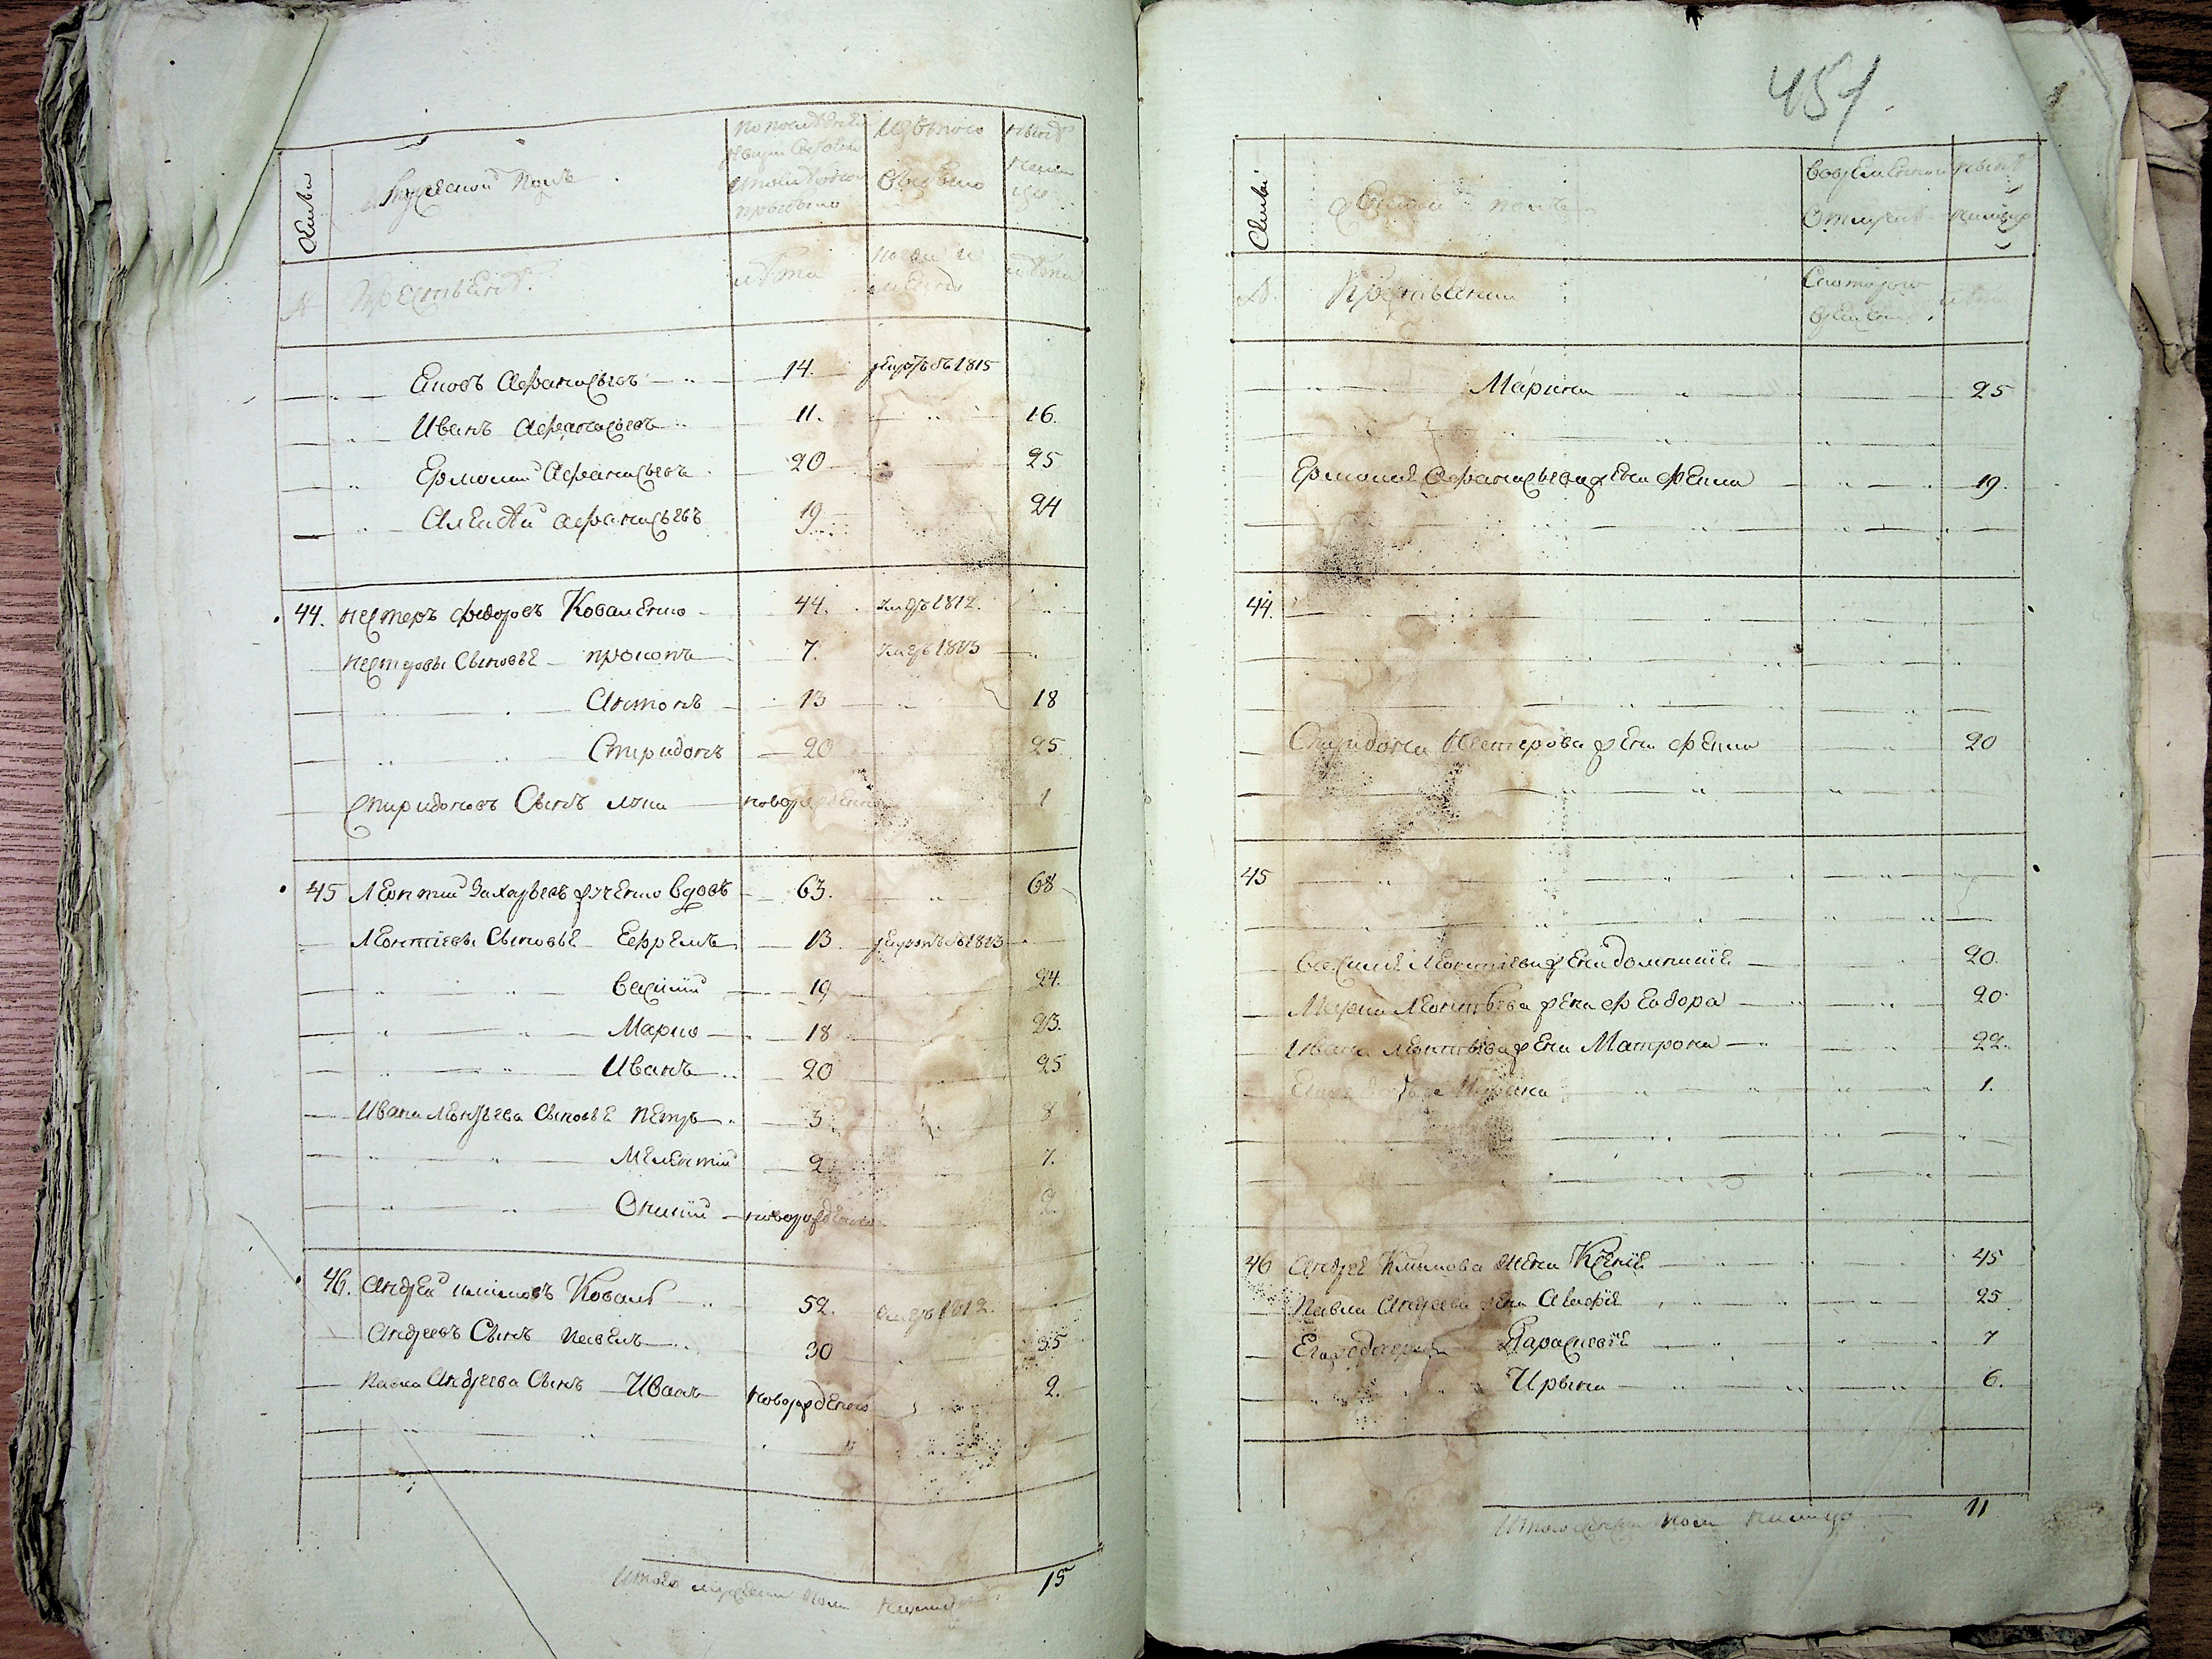 Семьи
Мужеской полъ
по последней ревизіи состояло и после оной прибыло
Изъ того
Выбыло
ныне на лицо
№
Крестьяне
лета
когда и
лета
Яковъ Афанасьевъ 14. 1815
Иванъ Афанасьевъ 11. 16.
Ермолай Афанасьевъ 20 25
Алексѣй Афанасьевъ 19 24
44. Нестеръ Федоровъ Коваленко 44. умеръ 1812.
Нестеровы Сыновье Прокопъ 7. умеръ 1813
Антонъ 13 18
Спиридонъ 20 25.
Спиридоновъ Сынъ Лука новорожденъ 1
45 Леонтий Захарьевъ вдовъ 63. 68
Леонтіевы Сыновье Ефремъ 13 1813
Василий 19 24.
Марко 18 23.
Иванъ 20 25
Ивана Леонтьева Сыновье Петръ 3 8
Мелентий 2 7.
новорожденъ 2
46. Андрей Климовъ Коваль 52. умеръ 1812.
Андреевъ Сынъ Павелъ 30 35
Павла Андреева Сынъ Иванъ новорожденъ 2.
Итого мужеска пола налицо 15
451
Семьи
Женской полъ
во временной отлучке
ныне налицо
№.
Крестьяне
Съ котораго времени
лета
Марина 25
Ермолая Афанасьева жена Фекла 19.
44.
Спиридона Нестерова жена Фекла 20
45
Василія Леонтіева жена Домникія 20.
Марка Леонтьева жена Феодора 20.
Ивана Леонтьева жена Матрона 22.
Его дочь Марина 1.
46 Андрея Климова жена Ксенія 45
Павла Андреева жена Агафія 25
Его дочери Парасковія 7
Ирина 6.
Итого женска пола налицо 11